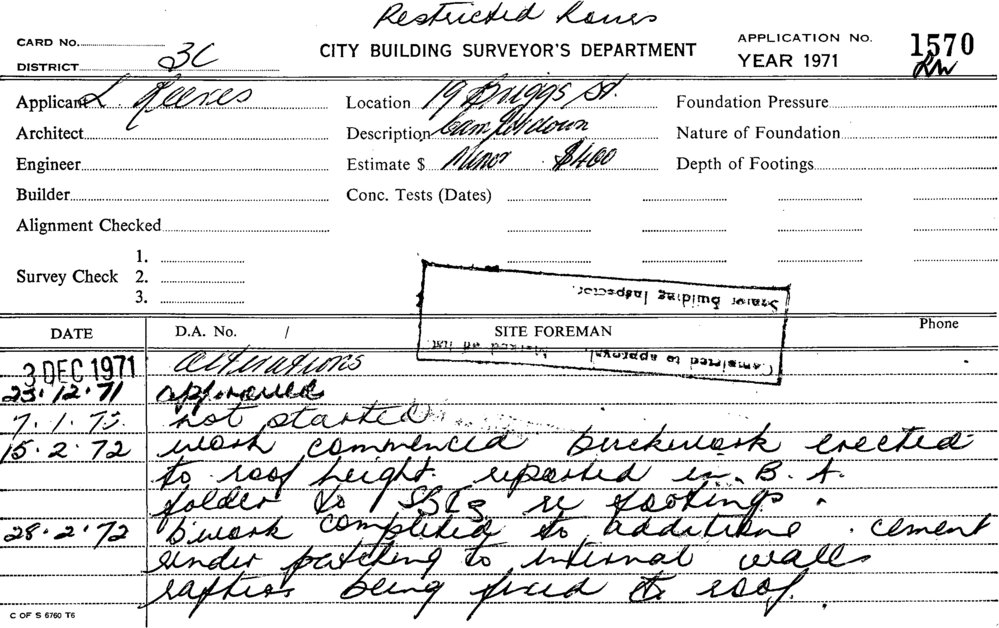 Restricted
CARD No.
DISTRICT 3C
CITY BUILDING SURVEYOR'S DEPARTMENT
APPLICATION No. 1570
YEAR 1971
Applicant L. Reeves
Location 19 Briggs St.
Foundation Pressure
Architect
Description Camperdown
Nature of Foundation
Engineer
Estimate $ Minor $400
Depth of Footings
Builder
Conc. Tests (Dates)
Alignment Checked
Survey Check
1.
2.
3.
Senior Building Inspector.
DATE
D.A. No. /
SITE FOREMAN
Phone
Completed to approval. Marked off list.
3 DEC 1971 Alterations
23.12.71 approved
7.1.72 not started
15.2.72 work commenced brickwork erected
to roof height reported in B.A.
folder to re footings.
28.2.72 b'work completed to additions. cement
render patching to internal walls
rafters being fixed to roof.
C OF S 6760 T6